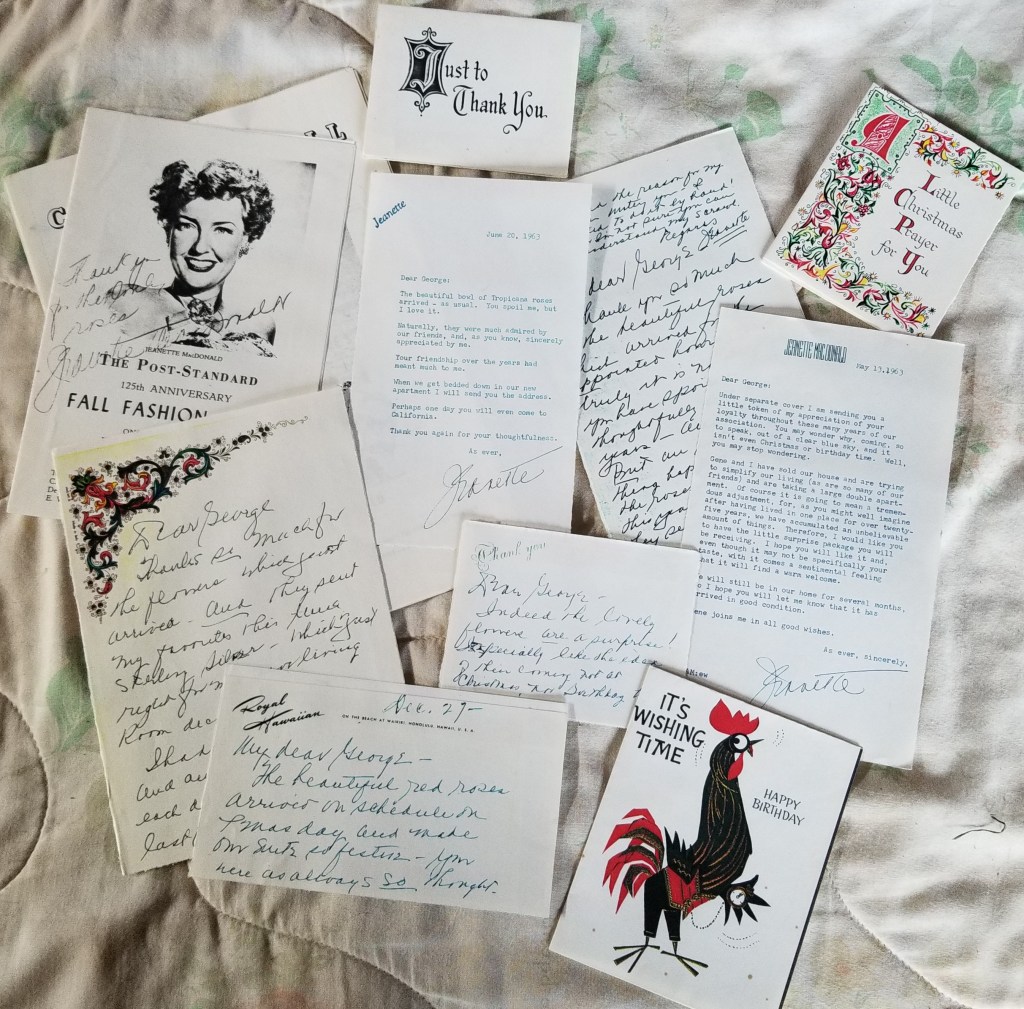 Just to
Thank You.
A
Little
Christmas
Prayer
for You
LL
C
Thank you
for the
roses
Jeanette MacDonald
JEANETTE MacDONALD
THE POST-STANDARD
125th ANNIVERSARY
FALL FASHION
Jeanette
June 20, 1963
Dear George:
The beautiful bowl of Tropicana roses
arrived - as usual. You spoil me, but
I love it.
Naturally, they were much admired by
our friends, and, as you know, sincerely
appreciated by me.
Your friendship over the years had
meant much to me.
When we get bedded down in our new
apartment I will send you the address.
Perhaps one day you will even come to
California.
Thank you again for your thoughtfulness.
As ever,
Jeanette
the reason for my
to do it by hand!
I'm not sure you can
understand my scrawl
Regards
Jeanette
Dear George
Thank you so much
the beautiful roses
arrived
truly it is
you have
thoughtful
years
But
Thing
The roses
JEANETTE MACDONALD
May 13, 1963
Dear George:
Under separate cover I am sending you a
little token of my appreciation of your
loyalty throughout these many years of our
association. You may wonder why, coming, so
to speak, out of a clear blue sky, and it
isn't even Christmas or birthday time. Well,
you may stop wondering.
Gene and I have sold our house and are trying
to simplify our living (as are so many of our
friends) and are taking a large double apart-
ment. Of course it is going to mean a tremen-
dous adjustment, for, as you might well imagine
after having lived in one place for over twenty-
five years, we have accumulated an unbelievable
amount of things. Therefore, I would like you
to have the little surprise package you will
be receiving. I hope you will like it and,
even though it may not be specifically your
taste, with it comes a sentimental feeling
that it will find a warm welcome.
We will still be in our home for several months,
so I hope you will let me know that it has
arrived in good condition.
Gene joins me in all good wishes.
As ever, sincerely,
Jeanette
Dear George
Thanks so much for
the flowers which just
arrived - and they sent
my favorites this time
Sterling Silver - which just
right for my living
Room
Thank
and
each
last
Thank you
Dear George -
Indeed the lovely
flowers are a surprise!
Especially like the idea
of their coming not at
Christmas, nor Birthday
Royal
Hawaiian
ON THE BEACH AT WAIKIKI · HONOLULU, HAWAII, U.S.A.
Dec. 27-
My dear George -
The beautiful red roses
arrived on schedule on
Xmas day and made
our suite so festive - You
were as always so thought-
IT'S
WISHING
TIME
HAPPY
BIRTHDAY